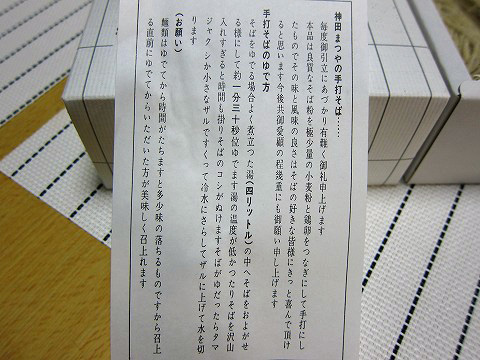 神田まつやの手打そば……
毎度御引立にあづかり有難く御礼申上げます
本品は良質なそば粉を極少量の小麦粉と鶏卵をつなぎにして手打にし
たものでその味と風味の良さはそばの好きな皆様にきっと喜んで頂け
ると思います今後共御愛顧の程幾重にも御願い申し上げます
手打そばのゆで方
そばをゆでる場合よく煮立つた湯(四リットル)の中へそばをおよがせ
る様にして約一分三十秒位ゆでます湯の温度が低かつたりそばを沢山
入れすぎると時間も掛りそばのコシがぬけますそばがゆだつたらタマ
ジャクシか小さなザルですくつて冷水にさらしてザルに上げて水を切
ります
(お願い)
麺類はゆでてから時間がたちますと多少味の落ちるものですから召上
る直前にゆでてからいただいた方が美味しく召上れます